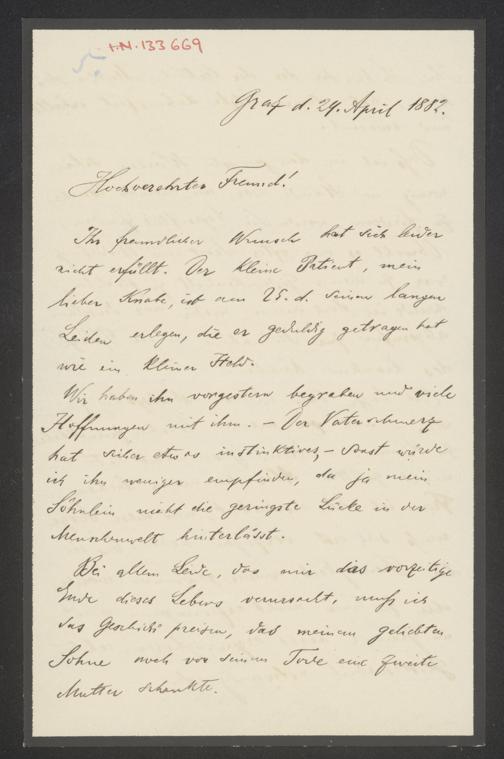 I.N. 133669
5.
Graz d. 29. April 1882.
Hochverehrter Freund!
Ihr freundlicher Wunsch hat sich leider
nicht erfüllt. Der kleine Patient, mein
lieber Knabe, ist am 25. d. seinem langen
Leiden erlegen, die er geduldig getragen hat
wie ein kleiner Held.
Wir haben ihn vorgestern begraben und viele
Hoffnungen mit ihm. – Der Vaterschmerz
hat sicher etwas instinktives, – sonst würde
ich ihn weniger empfinden, da ja mein
Söhnlein nicht die geringste Lücke in der
Menschenwelt hinterlässt.
Bei allem Leide, das mir das vorzeitige
Ende dieses Lebens verursacht, muß ich
das Geschick preisen, das meinem geliebten
Sohne noch vor seinem Tode eine zweite
Mutter schenkte.